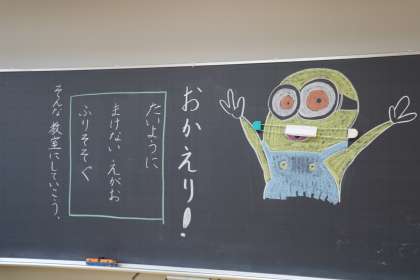 おかえり！
たいように
まけない えがお
ふりそそぐ
そんな教室にしていこう。